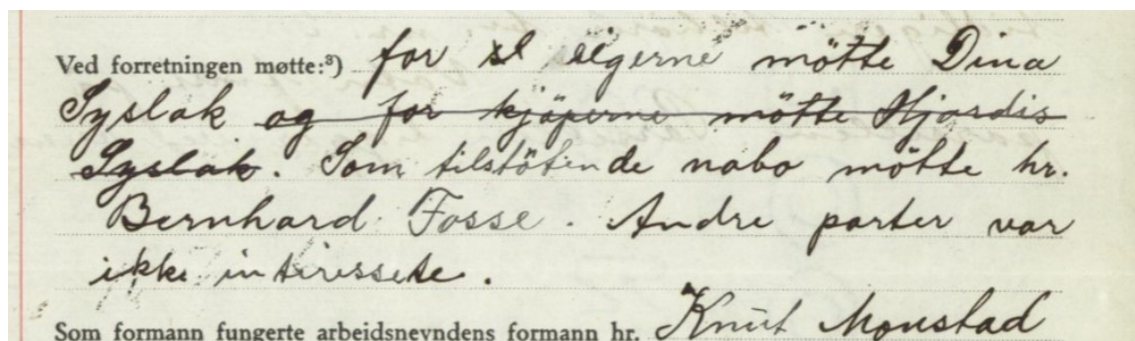 Ved forretningen møtte:³) for eigerne møtte Dina
Syslak og for kjøperne møtte Hjordis
Syslak. Som tilstøtende nabo møtte hr.
Bernhard Fosse. Andre parter var
ikke interessete.
Som formann fungerte arbeidsnevndens formann hr. Knut Monstad